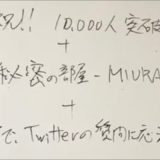 祝!! 10,000人突破
+
秘密の部屋-MIURA
+
で、Twitterの質問に応